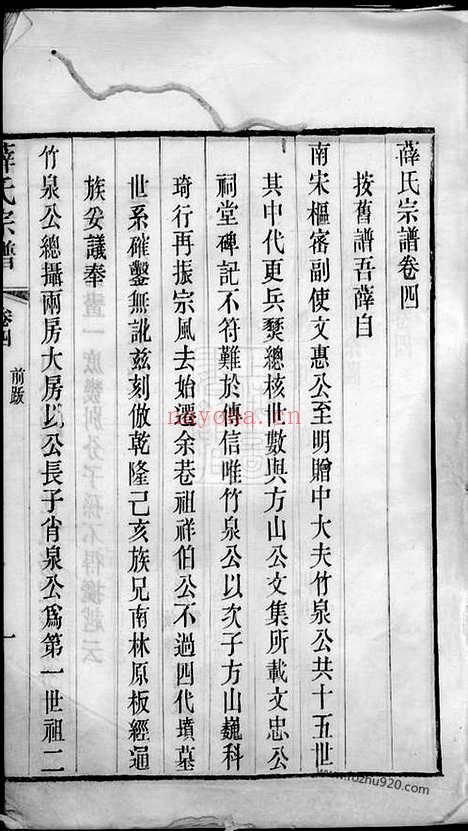 薛氏宗譜卷四
按舊譜吾薛自
南宋樞密副使文惠公至明贈中大夫竹泉公共十五世
其中代更兵燹總核世數與方山公文集所載文忠公
祠堂碑記不符難於傳信唯竹泉公以次子方山巍科
琦行再振宗風去始遷余巷祖祥伯公不過四代墳墓
世系確鑿無訛兹刻倣乾隆己亥族兄南林原板經通
族妥議奉
竹泉公總攝兩房大房以公長子肖泉公爲第一世祖二
薛氏宗譜
卷四
前跋
一
nayona.cn
www.fuzhu920.com